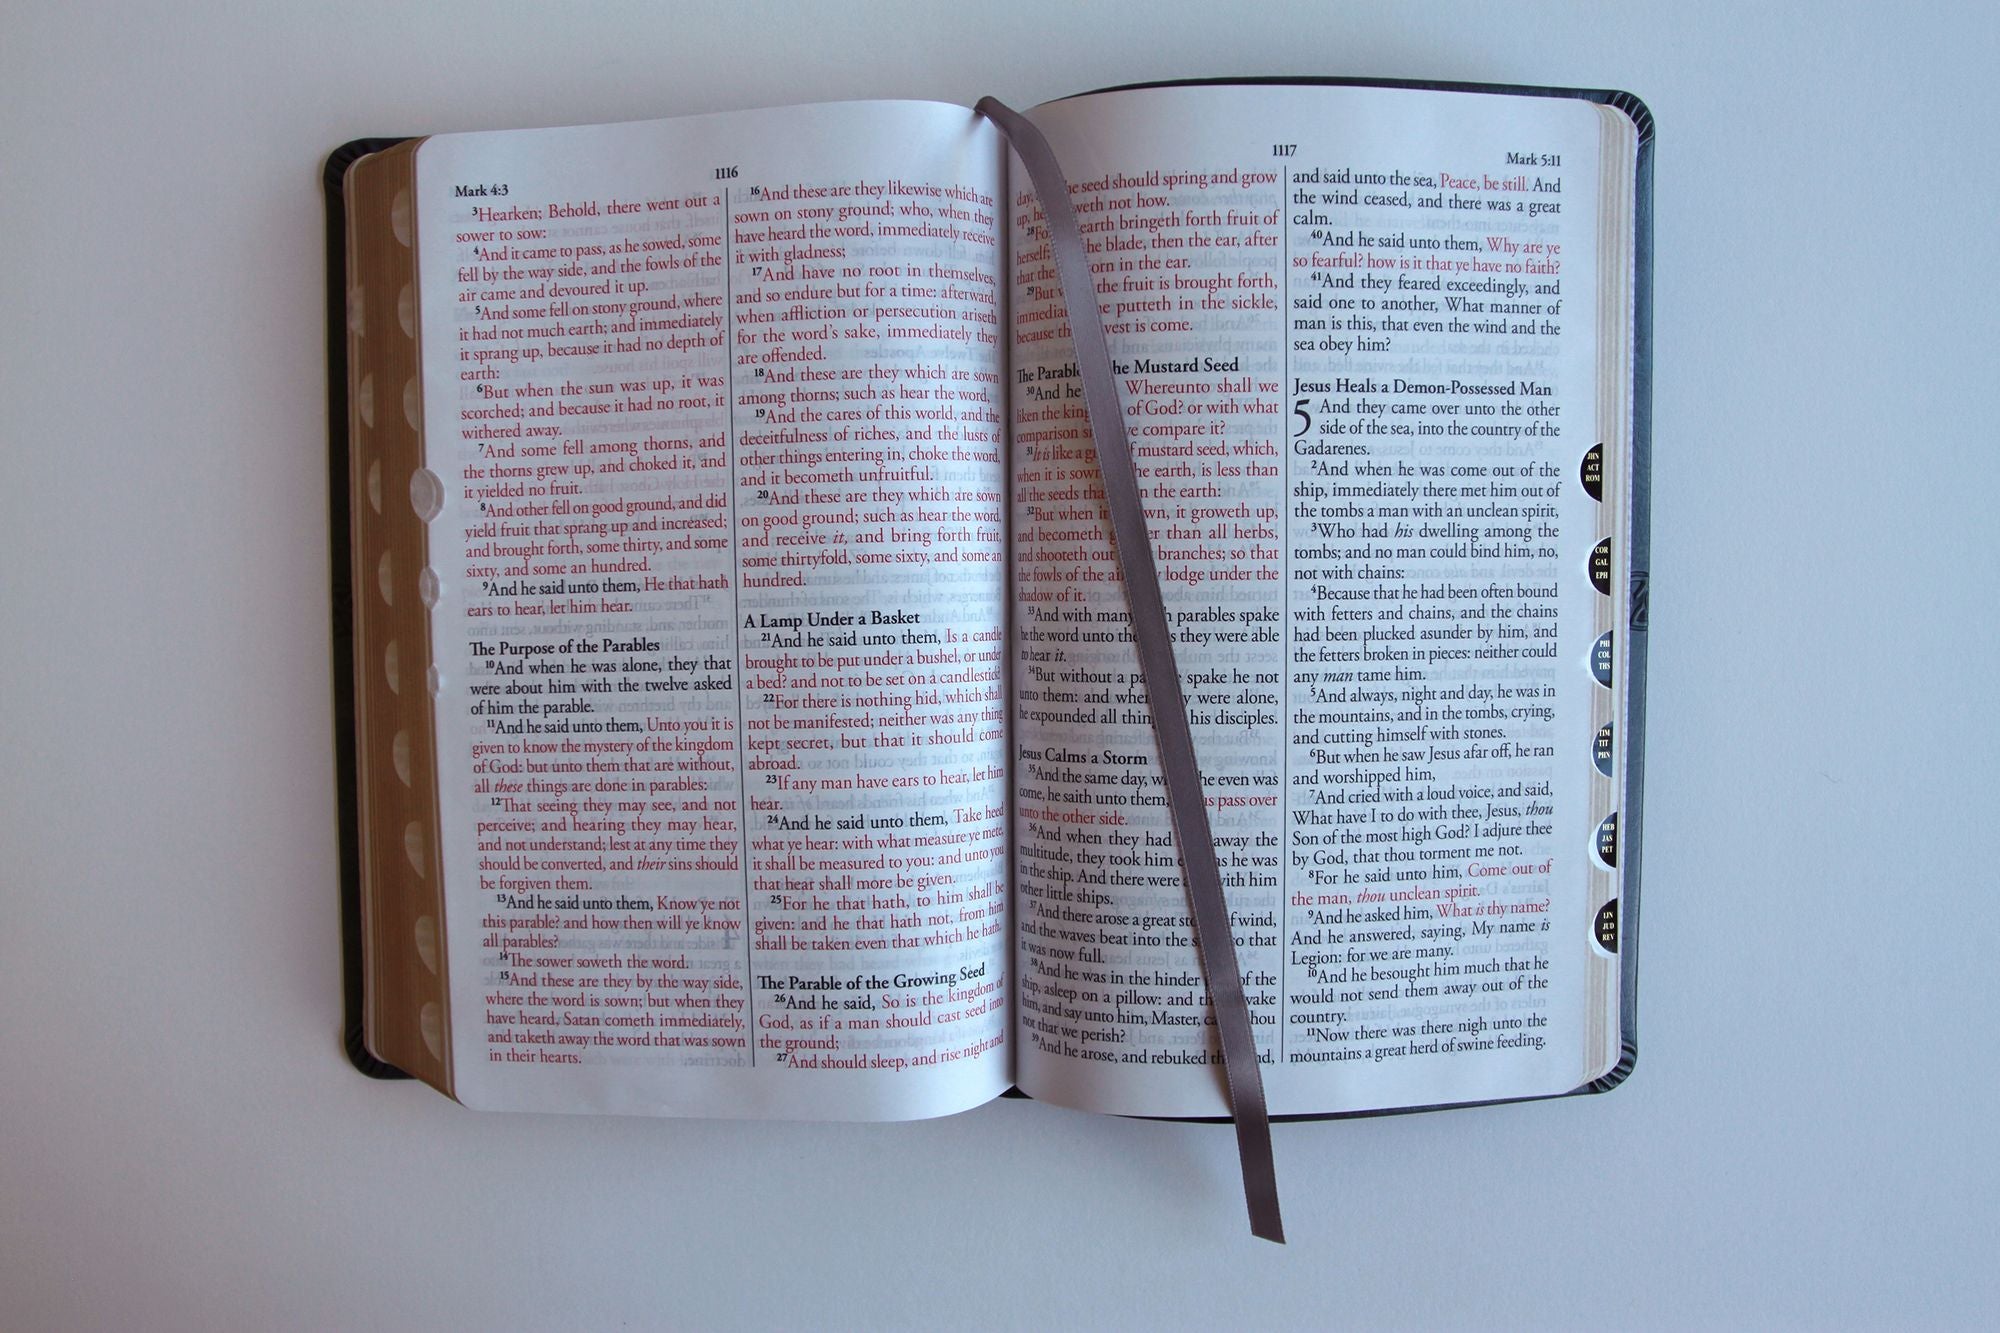 1116
Mark 4:3
3Hearken; Behold, there went out a
sower to sow:
4And it came to pass, as he sowed, some
fell by the way side, and the fowls of the
air came and devoured it up.
5And some fell on stony ground, where
it had not much earth; and immediately
it sprang up, because it had no depth of
earth:
6But when the sun was up, it was
scorched; and because it had no root, it
withered away.
7And some fell among thorns, and
the thorns grew up, and choked it, and
it yielded no fruit.
8And other fell on good ground, and did
yield fruit that sprang up and increased;
and brought forth, some thirty, and some
sixty, and some an hundred.
9And he said unto them, He that hath
ears to hear, let him hear.
The Purpose of the Parables
10And when he was alone, they that
were about him with the twelve asked
of him the parable.
11And he said unto them, Unto you it is
given to know the mystery of the kingdom
of God: but unto them that are without,
all these things are done in parables:
12That seeing they may see, and not
perceive; and hearing they may hear,
and not understand; lest at any time they
should be converted, and their sins should
be forgiven them.
13And he said unto them, Know ye not
this parable? and how then will ye know
all parables?
14The sower soweth the word.
15And these are they by the way side,
where the word is sown; but when they
have heard, Satan cometh immediately,
and taketh away the word that was sown
in their hearts.
16And these are they likewise which are
sown on stony ground; who, when they
have heard the word, immediately receive
it with gladness;
17And have no root in themselves,
and so endure but for a time: afterward,
when affliction or persecution ariseth
for the word's sake, immediately they
are offended.
18And these are they which are sown
among thorns; such as hear the word,
19And the cares of this world, and the
deceitfulness of riches, and the lusts of
other things entering in, choke the word,
and it becometh unfruitful.
20And these are they which are sown
on good ground; such as hear the word,
and receive it, and bring forth fruit,
some thirtyfold, some sixty, and some an
hundred.
A Lamp Under a Basket
21And he said unto them, Is a candle
brought to be put under a bushel, or under
a bed? and not to be set on a candlestick?
22For there is nothing hid, which shall
not be manifested; neither was any thing
kept secret, but that it should come
abroad.
23If any man have ears to hear, let him
hear.
24And he said unto them, Take heed
what ye hear: with what measure ye mete,
it shall be measured to you: and unto you
that hear shall more be given.
25For he that hath, to him shall be
given: and he that hath not, from him
shall be taken even that which he hath.
The Parable of the Growing Seed
26And he said, So is the kingdom of
God, as if a man should cast seed into
the ground;
27And should sleep, and rise night and
1117
Mark 5:11
day, seed should spring and grow
up, not how.
28 earth bringeth forth fruit of
herself; the blade, then the ear, after
that the corn in the ear.
29But the fruit is brought forth,
putteth in the sickle,
because is come.
The Mustard Seed
30And he Whereunto shall we
liken the of God? or with what
comparison compare it?
31It is like a mustard seed, which,
when it is sown the earth, is less than
all the seeds in the earth:
32But when it groweth up,
and becometh than all herbs,
and shooteth out branches; so that
the fowls of the lodge under the
shadow of it.
33And with many parables spake
he the word unto as they were able
to hear it.
34But without a spake he not
unto them: and when were alone,
he expounded all his disciples.
Jesus Calms a Storm
35And the same day, the even was
come, he saith unto them, pass over
unto the other side.
36And when they had away the
multitude, they took him as he was
in the ship. And there were with him
other little ships.
37And there arose a great of wind,
and the waves beat into the so that
it was now full.
38And he was in the hinder of the
ship, asleep on a pillow: and
him, and say unto him, Master, thou
not that we perish?
39And he arose, and rebuked
and said unto the sea, Peace, be still. And
the wind ceased, and there was a great
calm.
40And he said unto them, Why are ye
so fearful? how is it that ye have no faith?
41And they feared exceedingly, and
said one to another, What manner of
man is this, that even the wind and the
sea obey him?
Jesus Heals a Demon-Possessed Man
5 And they came over unto the other
side of the sea, into the country of the
Gadarenes.
2And when he was come out of the
ship, immediately there met him out of
the tombs a man with an unclean spirit,
3Who had his dwelling among the
tombs; and no man could bind him, no,
not with chains:
4Because that he had been often bound
with fetters and chains, and the chains
had been plucked asunder by him, and
the fetters broken in pieces: neither could
any man tame him.
5And always, night and day, he was in
the mountains, and in the tombs, crying,
and cutting himself with stones.
6But when he saw Jesus afar off, he ran
and worshipped him,
7And cried with a loud voice, and said,
What have I to do with thee, Jesus, thou
Son of the most high God? I adjure thee
by God, that thou torment me not.
8For he said unto him, Come out of
the man, thou unclean spirit.
9And he asked him, What is thy name?
And he answered, saying, My name is
Legion: for we are many.
10And he besought him much that he
would not send them away out of the
country.
11Now there was there nigh unto the
mountains a great herd of swine feeding.
JHN
ACT
ROM
COR
GAL
EPH
PHI
COL
THS
TIM
TIT
PHN
HEB
JAS
PET
1JN
JUD
REV